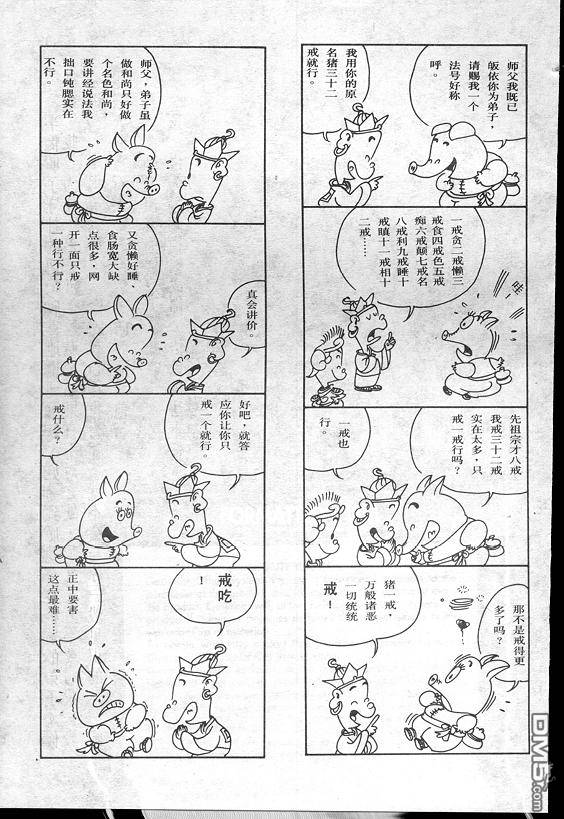 师父我既已
皈依你为弟子，
请赐我一个
法号好称
呼。
我用你的原
名猪三十二
戒就行。
一戒贪二戒懒三
戒食四戒色五戒
痴六戒颠七戒名
八戒利九戒睡十
戒瞋十一戒相十
二戒……
哇
先祖宗才八戒
我戒三十二戒
实在太多，只
戒一戒行吗？
一戒也
行。
那不是戒得更
多了吗？
猪一戒，
万般诸恶
一切统统
戒！
师父，弟子虽
做和尚只好做
个名色和尚，
要讲经说法我
拙口钝腮实在
不行。
又贪懒好睡，
食肠宽大缺
点很多，网
开一面只戒
一种行不行？
真会讲价。
好吧，就答
应你让你只
戒一个就行。
戒什么？
戒吃
！
正中要害
这点最难……
DM5.com